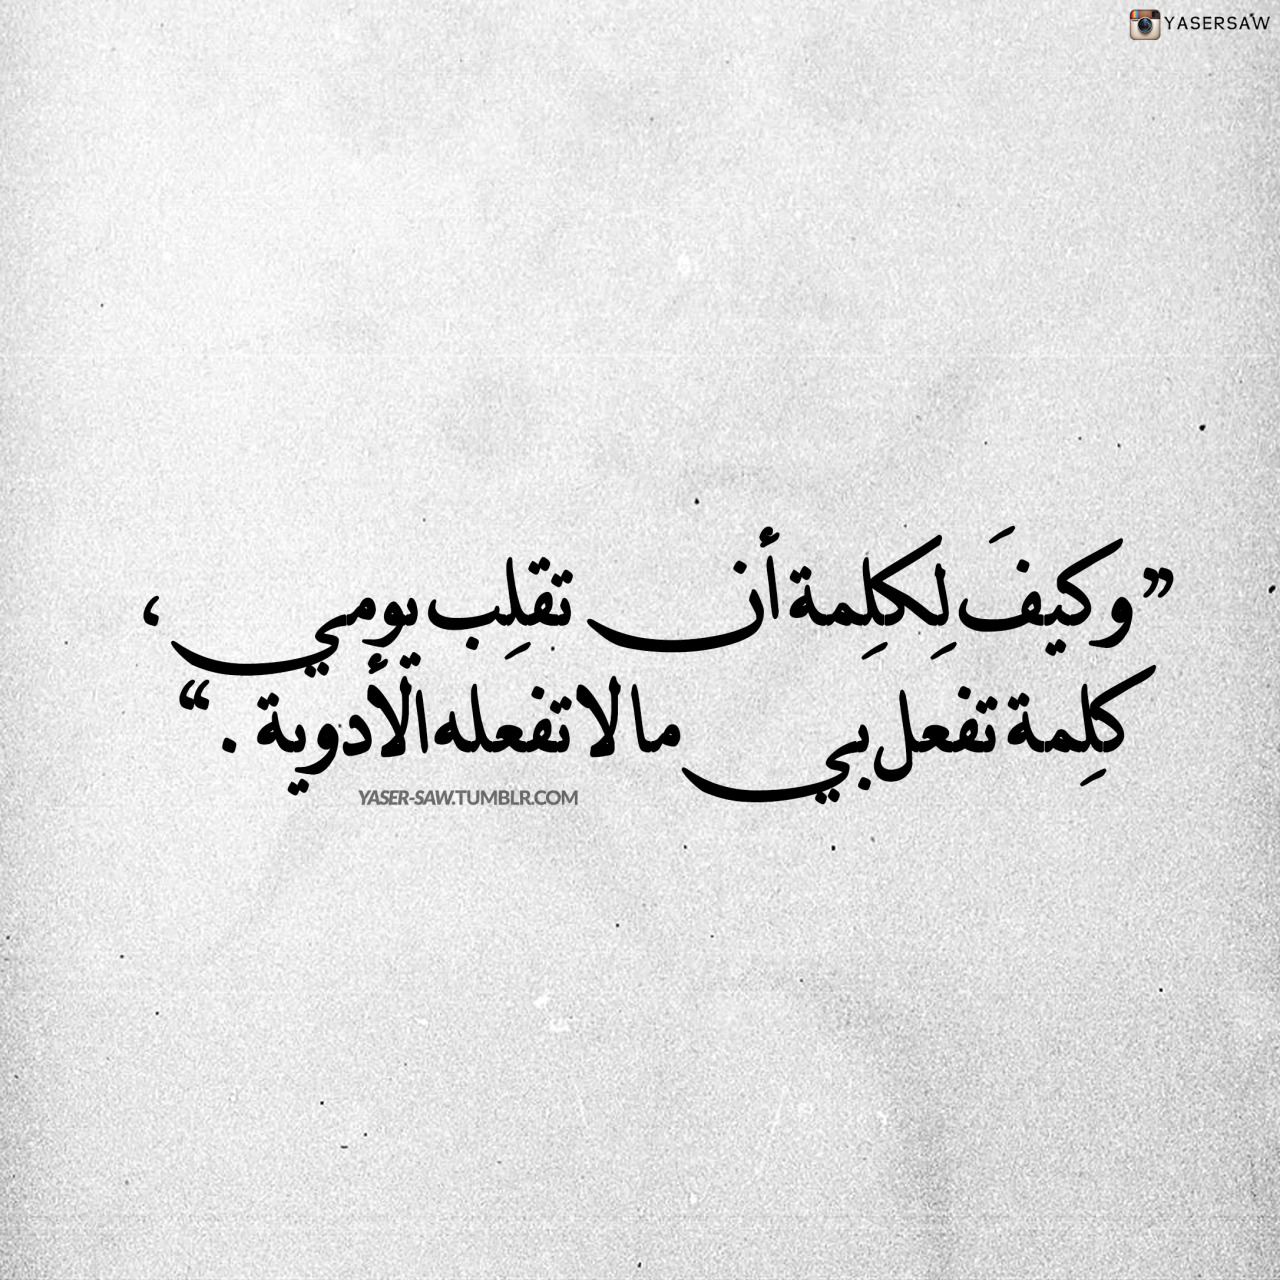 YASERSAW
”وكيفَ لِكلِمة أن تقلِب يومي ،
كلِمة تفعل بي ما لا تفعله الأدوية . “
YASER-SAW.TUMBLR.COM